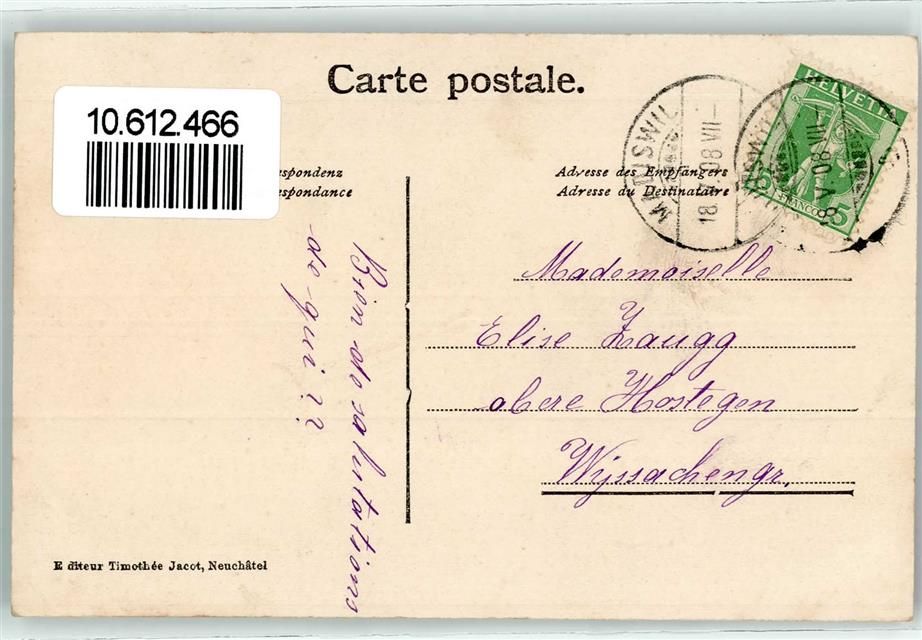 Carte postale.
10.612.466
spondenz
spondance
Adresse des Empfängers
Adresse du Destinataire
MADISWIL
18. 08 VII-
HELVETIA
5 5
FRANCO
Mademoiselle
Elise Zaugg
obere Hostegen
Wyssachengr.
Bien de salutations
de-qui ??
Editeur Timothée Jacot, Neuchâtel